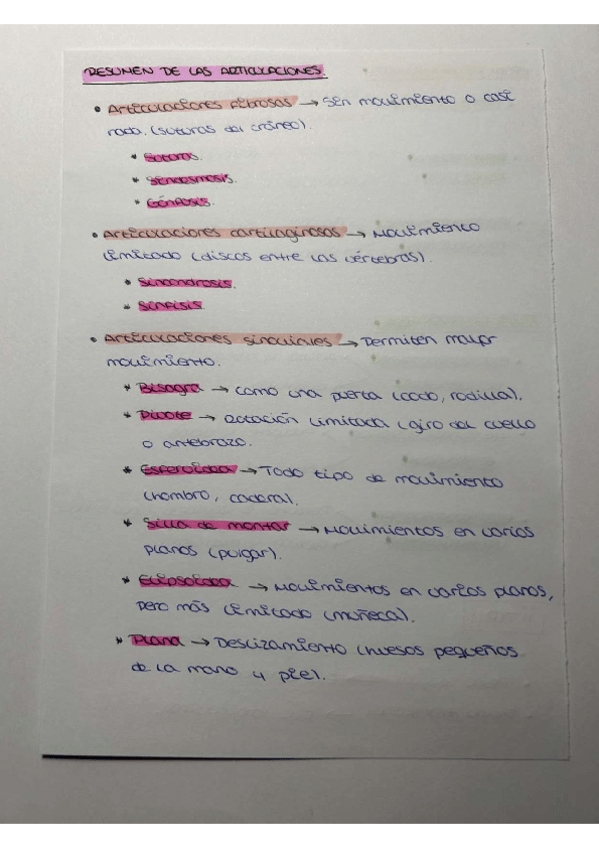 RESUMEN DE LAS ARTICULACIONES.
• Articulaciones fibrosas → Sin movimiento o casi
nada. (suturas del cráneo).
* Suturas.
* Sindesmosis.
* Gónfosis.
• Articulaciones cartilaginosas → Movimiento
limitado (discos entre las vértebras).
* Sincondrosis.
* Sínfisis
• Articulaciones sinoviales → Permiten mayor
movimiento.
* Bisagra → como una puerta (codo, rodilla).
* Pivote → Rotación limitada (giro del cuello
o antebrazo.
* Esferoidea → Todo tipo de movimiento
(hombro, cadera).
* Silla de montar → Movimientos en varios
planos (pulgar).
* Elipsoidea → Movimientos en varios planos,
pero más limitado (muñeca).
* Plana → Deslizamiento (huesos pequeños
de la mano y pie).